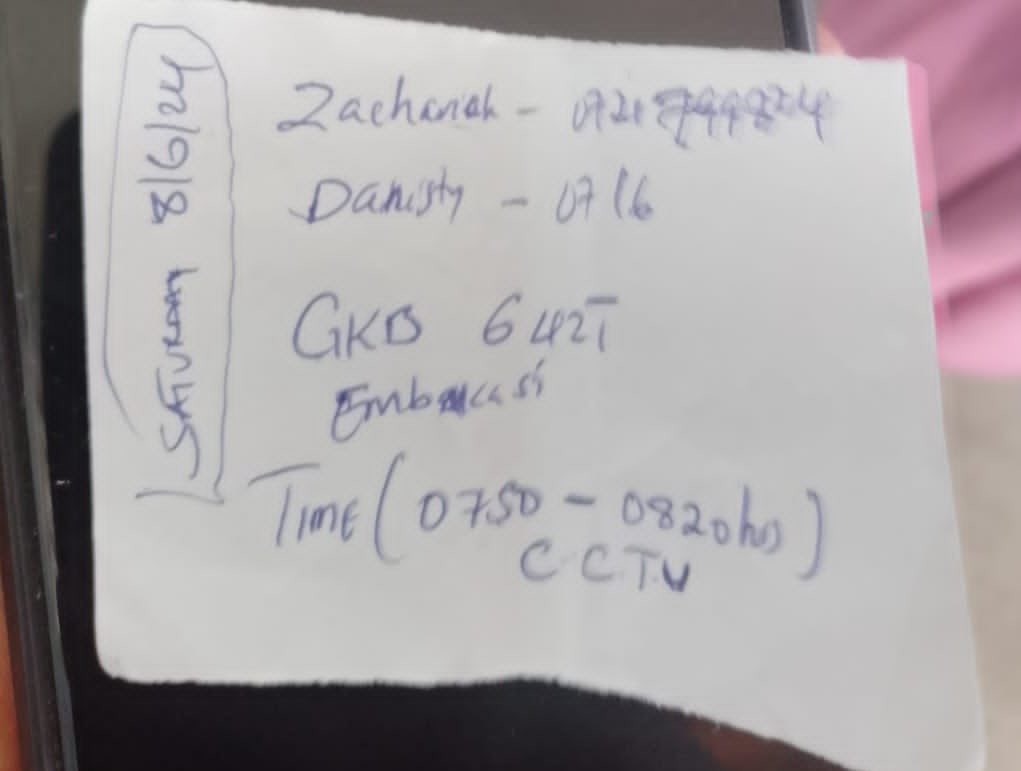 SATURDAY 8/6/24
Zachariah -
Danisty - 0716
GKB 642T
Embakasi
TIME (0750 - 0820hrs)
C.C.T.V